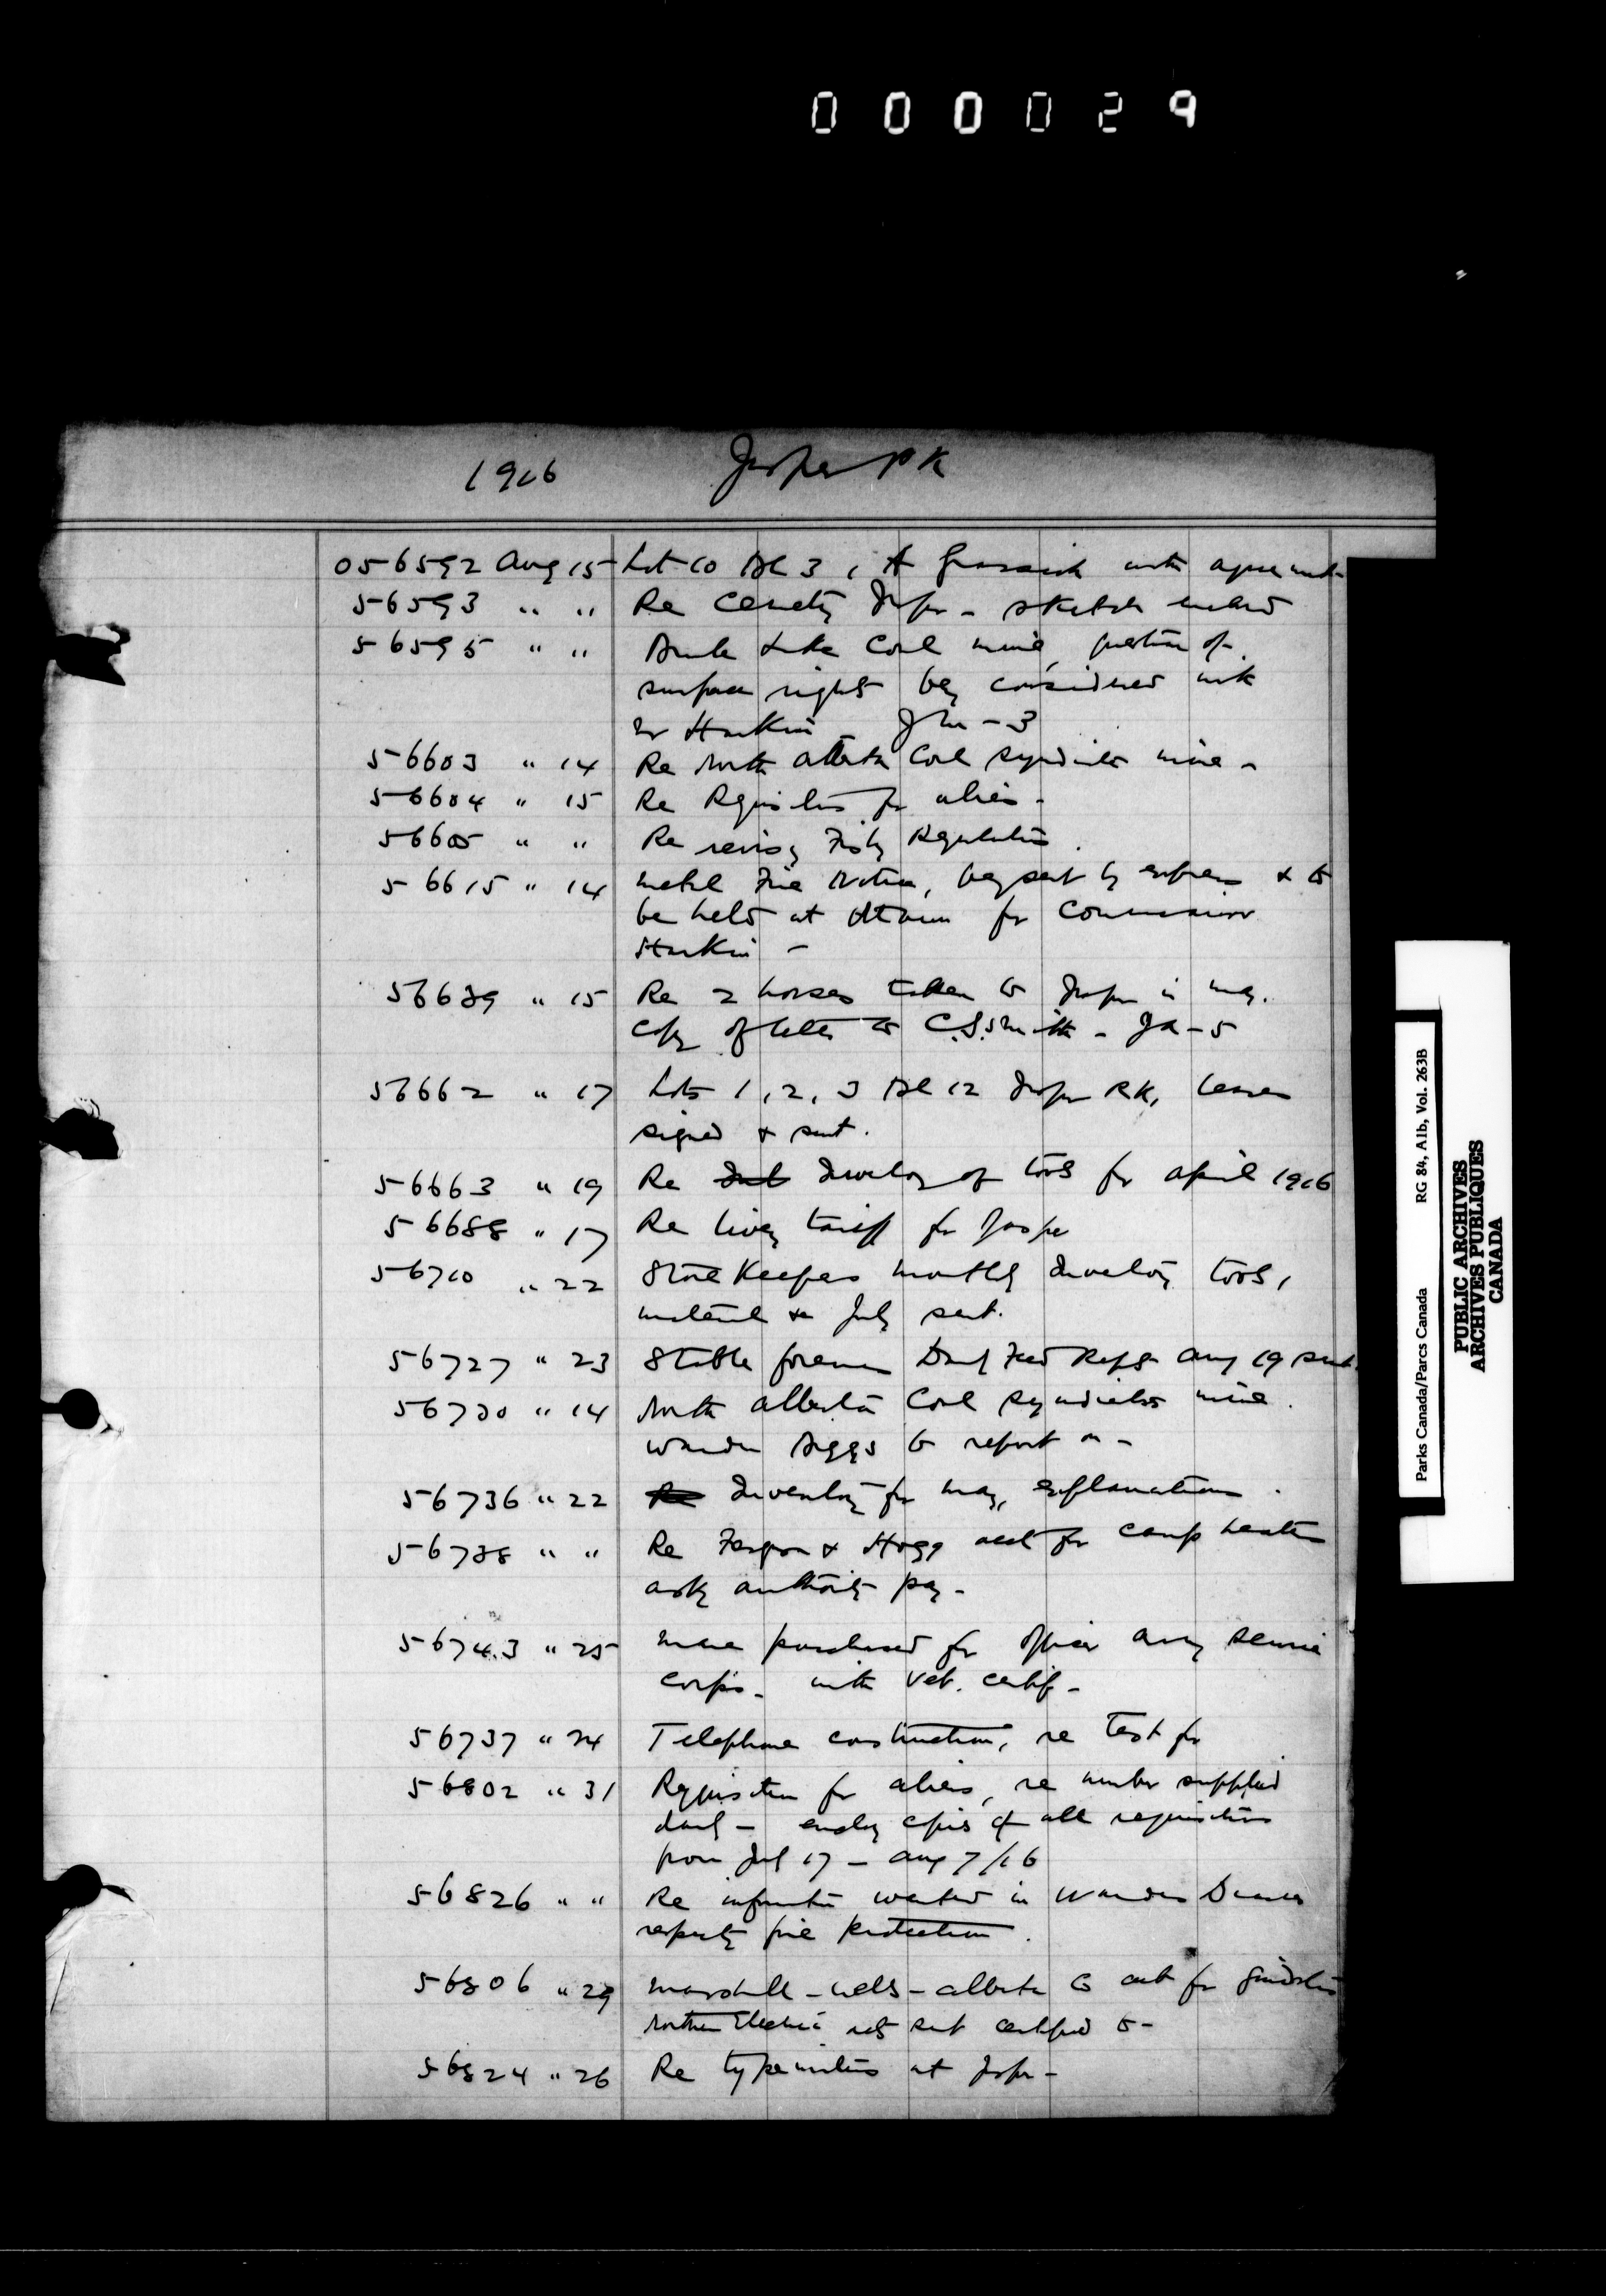 000029
1916 Jasper Pk
056592 Aug 15 Lot 10 Bk 3, A with agreement
56593 " " Re Cemetery Jasper - sketch enclosed
56595 " " Brule Lake Coal mine, question of
surface rights being considered with
Mr Harkin - 3
56603 " 14 Re North Alberta Coal Syndicate mine -
56604 " 15 Re Requisition for aliens -
56605 " " Re revising Fishing Regulations.
56615 " 14 metal Fire Notices, being sent by express & to
be held at Ottawa for Commissioner
Harkin -
56639 " 15 Re 2 horses taken to Jasper in May.
copy of letter to C.S. Smith - - 5
56662 " 17 Lots 1, 2, 3 Bl 12 Jasper Pk, leases
signed & sent.
56663 " 19 Re Inventory of tools for April 1916
56688 " 17 Re livery tariff for Jasper
56710 " 22 Store Keepers monthly Inventory tools,
material &c July sent.
56727 " 23 Stable foreman Daily Feed Reps Aug 19 sent.
56730 " 14 North Alberta Coal Syndicates mine.
Warden to report on -
56736 " 22 Re Inventory for May, explanation.
56738 " " Re & Hogg acct for camp heater
asking authority pay -
56743 " 25 mare purchased for officer Army Service
Corps - with Vet. certif -
56737 " 24 Telephone construction, re Test for
56802 " 31 Requisition for aliens, re number supplied
daily - enclosing copies of all requisitions
from Jul 17 - Aug 7/16
56826 " " Re information wanted in Wardens Diaries
respecting fire protection.
56806 " 29 Marshall - Wells - Alberta Co acct for
Northern Electric not sent certified to -
56824 " 26 Re typewriters at Jasper -
Parks Canada/Parcs Canada RG 84, A1b, Vol. 263B
PUBLIC ARCHIVES
ARCHIVES PUBLIQUES
CANADA